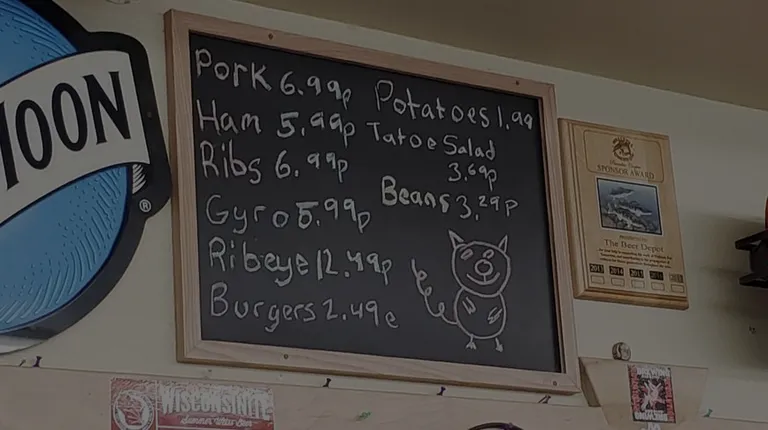 MOON
®
Pork 6.99p
Ham 5.99p
Ribs 6.99p
Gyro 5.99p
Ribeye 12.49p
Burgers 2.49e
Potatoes 1.99
Tatoe Salad
3.69p
Beans 3.29p
SPONSOR AWARD
The Beer Depot
WISCONSINITE
Summer Weiss Beer